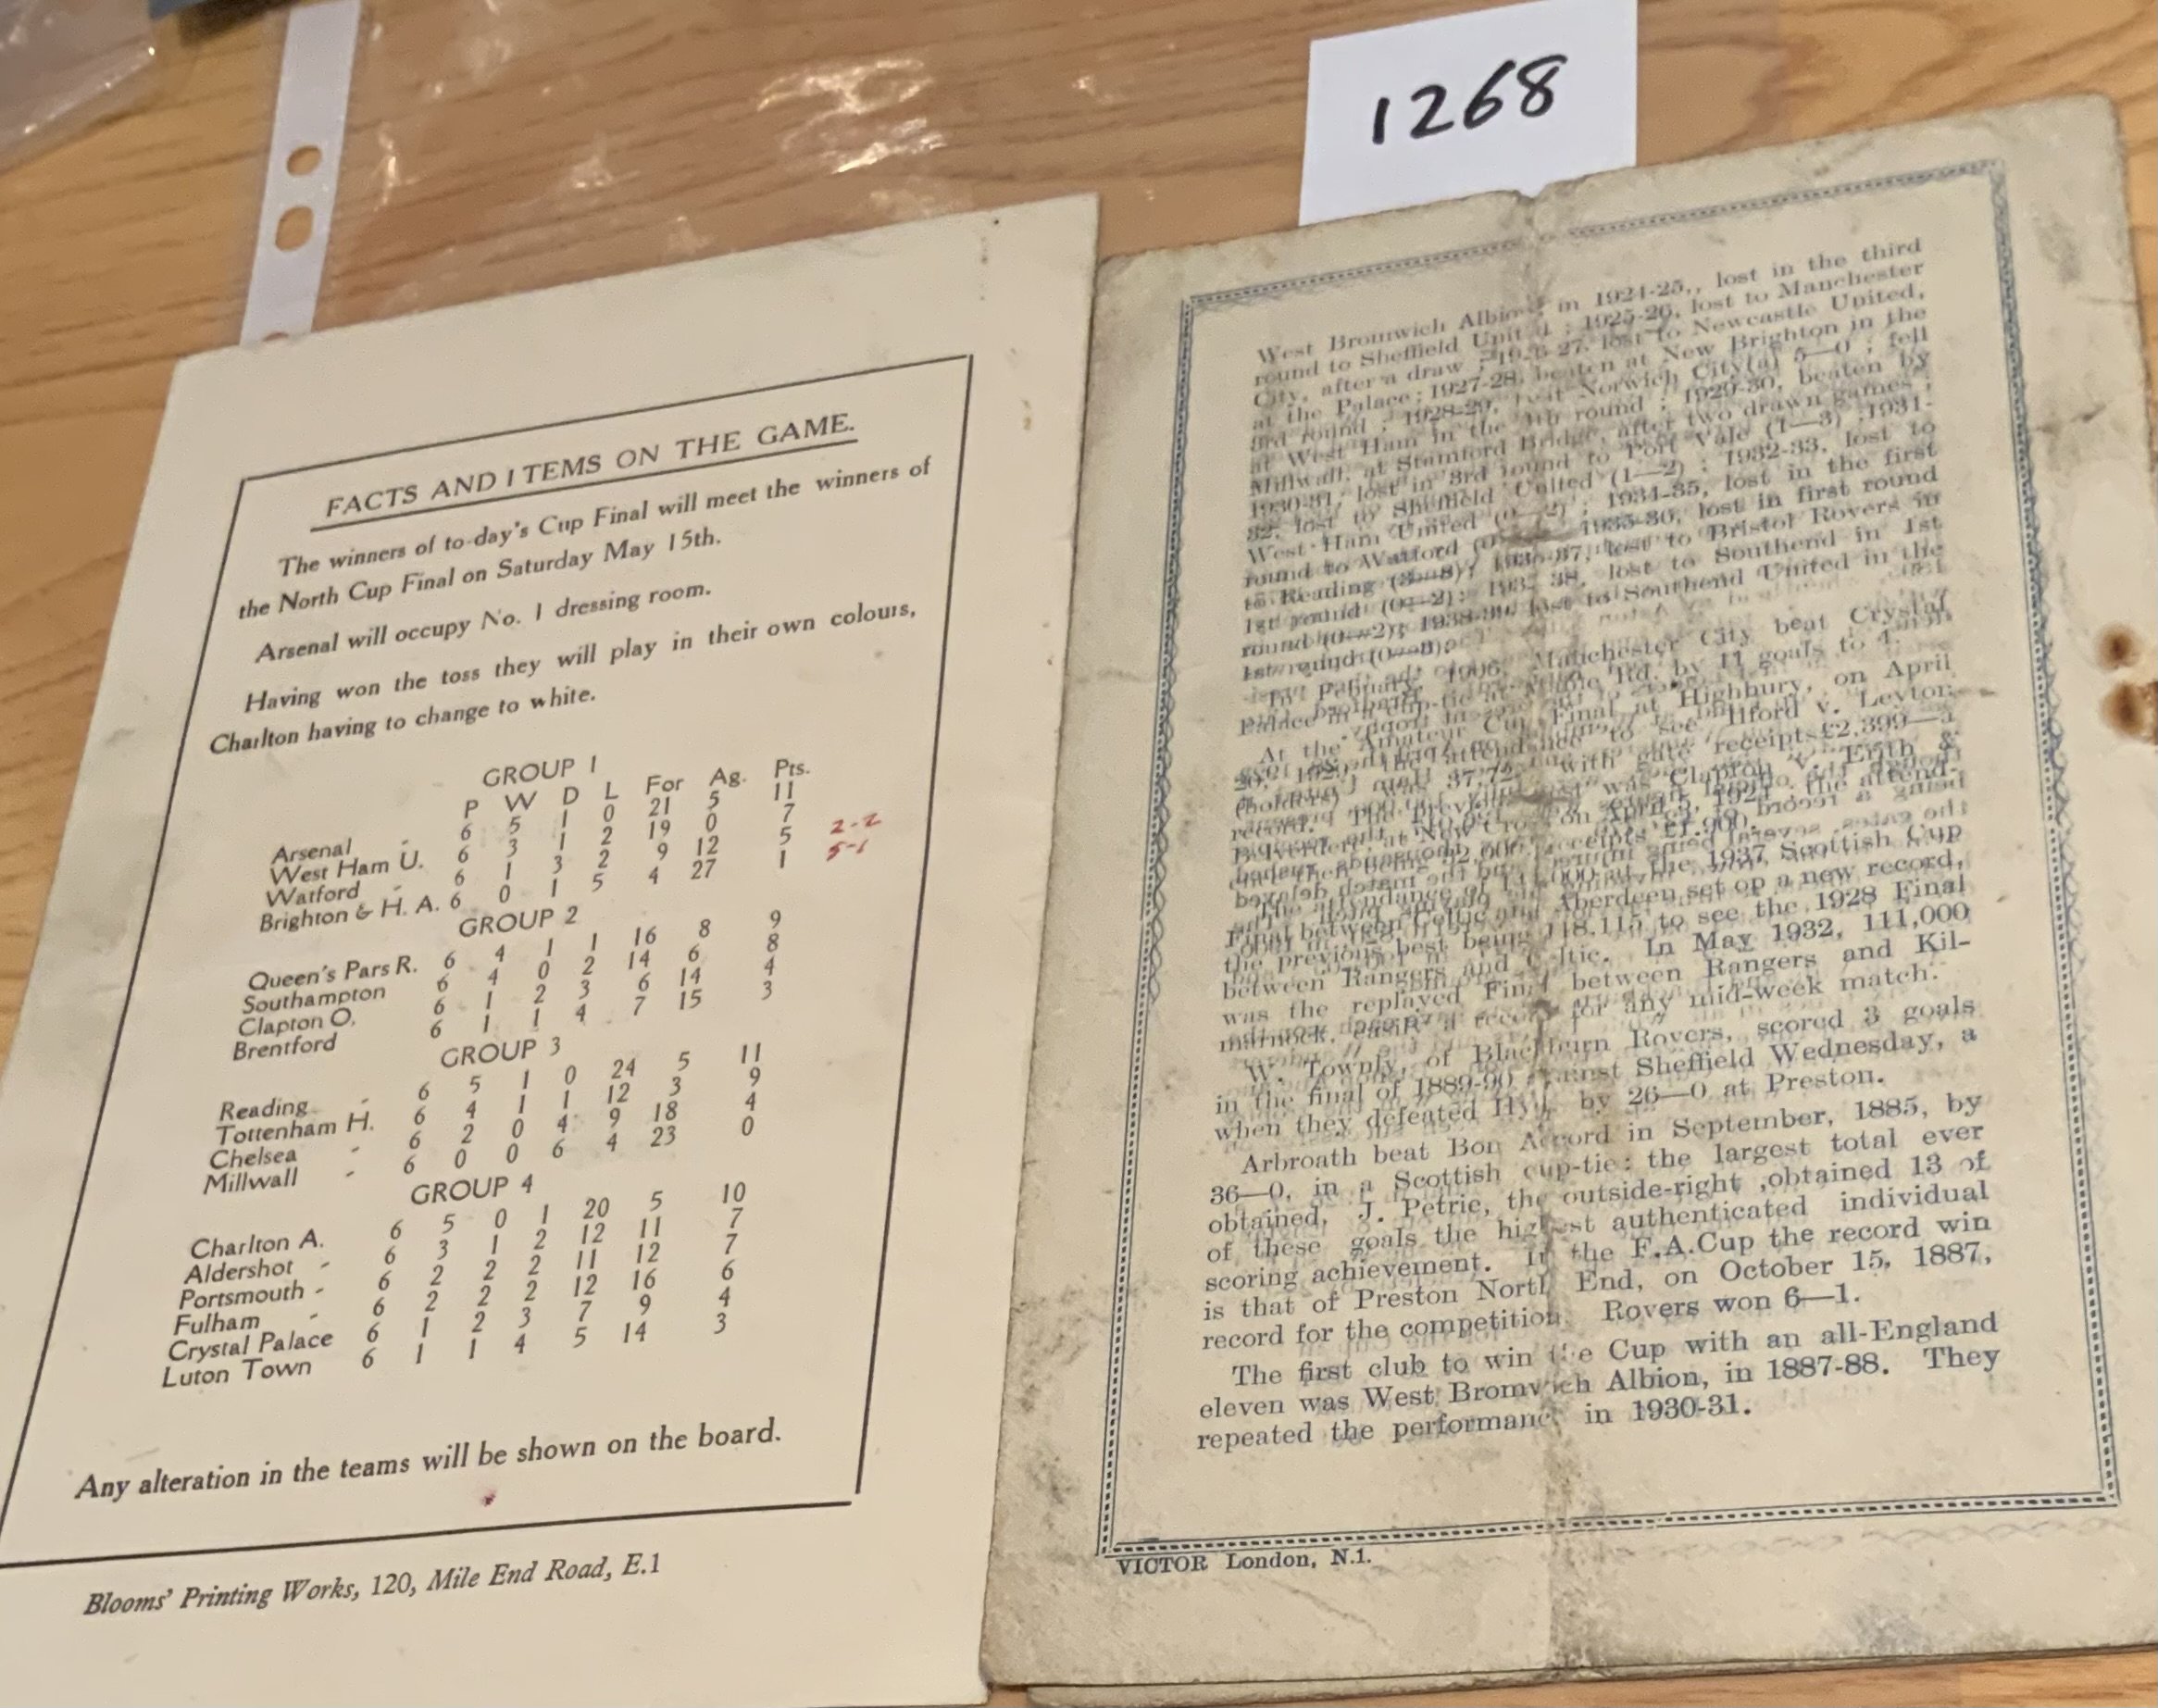 1268
FACTS AND ITEMS ON THE GAME.
The winners of to-day's Cup Final will meet the winners of
the North Cup Final on Saturday May 15th.
Arsenal will occupy No. 1 dressing room.
Having won the toss they will play in their own colours,
Charlton having to change to white.
GROUP 1
P W D L For Ag. Pts.
Arsenal - 6 5 1 0 21 5 11
West Ham U. 6 3 1 2 19 0 7
Watford - 6 1 3 2 9 12 5 2-2
Brighton & H. A. 6 0 1 5 4 27 1 5-1
GROUP 2
Queen's Pars R. 6 4 1 1 16 8 9
Southampton 6 4 0 2 14 6 8
Clapton O. 6 1 2 3 6 14 4
Brentford 6 1 1 4 7 15 3
GROUP 3
Reading - 6 5 1 0 24 5 11
Tottenham H. 6 4 1 1 12 3 9
Chelsea - 6 2 0 4 9 18 4
Millwall - 6 0 0 6 4 23 0
GROUP 4
Charlton A. 6 5 0 1 20 5 10
Aldershot - 6 3 1 2 12 11 7
Portsmouth - 6 2 2 2 11 12 7
Fulham - 6 2 2 2 12 16 6
Crystal Palace 6 1 2 3 7 9 4
Luton Town 6 1 1 4 5 14 3
Any alteration in the teams will be shown on the board.
Blooms' Printing Works, 120, Mile End Road, E.1
West Bromwich Albion in 1924-25,, lost in the third
round to Sheffield United ; 1925-26, lost to Manchester
City, after a draw ; lost to Newcastle United,
at the Palace ; 1927-28, beaten at New Brighton in the
3rd round ; 1928-29, lost Norwich City 5—0 ; fell
at West Ham in the 4th round ; 1929-30, beaten by
Millwall, at Stamford Bridge, after two drawn games ;
1930-31, lost in 3rd round to Port Vale (1—3) ;1931-
32, lost to Sheffield United (1—2) ; 1932-33, lost to
West Ham United ; 1934-35, lost in the first
round to Watford ; 1935-36, lost in first round
to Reading ; lost to Bristol Rovers in
1st round (0—2) ; lost to Southend in 1st
round (0—2); 1938-39, lost to Southend United in the
1st round
Manchester City beat Crystal
Palace in a cup-tie at Rd. by 11 goals to 4.
At the Amateur Cup Final at Highbury, on April
attendance to see Ilford v. Leyton
(holders) with gate receipts £2,399—a
record. The previous was Clapton v. Erith &
Belvedere, at New Cross on April 5, 1924, the attend-
receipts £1,900
the 1937 Scottish Cup
Final between Celtic and Aberdeen set op a new record,
the previous best being 118,115 to see the 1928 Final
between Rangers and Celtic. In May 1932, 111,000
was the replayed Final between Rangers and Kil-
marnock, easily a record for any mid-week match.
W. Townly, of Blackburn Rovers, scored 3 goals
in the final of 1889-90 against Sheffield Wednesday, a
when they defeated Hyde by 26—0 at Preston.
Arbroath beat Bon Accord in September, 1885, by
36—0, in a Scottish cup-tie: the largest total ever
obtained, J. Petrie, the outside-right ,obtained 13 of
of these goals the highest authenticated individual
scoring achievement. In the F.A.Cup the record win
is that of Preston North End, on October 15, 1887,
record for the competition. Rovers won 6—1.
The first club to win the Cup with an all-England
eleven was West Bromwich Albion, in 1887-88. They
repeated the performance in 1930-31.
VICTOR London, N.1.